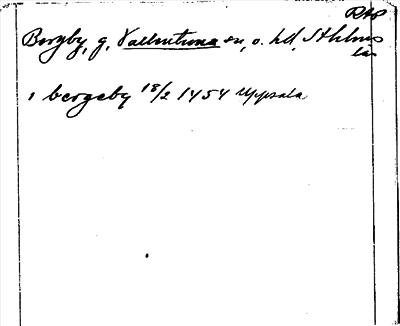 RAP
Bergby, g, Vallentuna sn, o. hd, Sthlms
län
i bergeby 18/2 1454 Uppsala